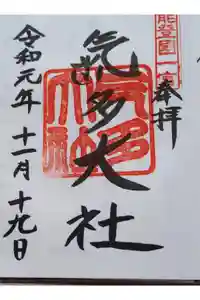 能登國一宮
奉拝
氣多大社
令和元年十一月十九日